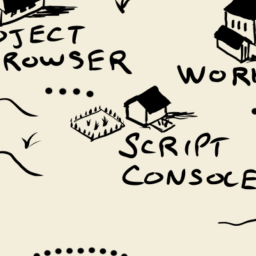 OJECT
ROWSER
WOR
SCRIPT
CONSOLE